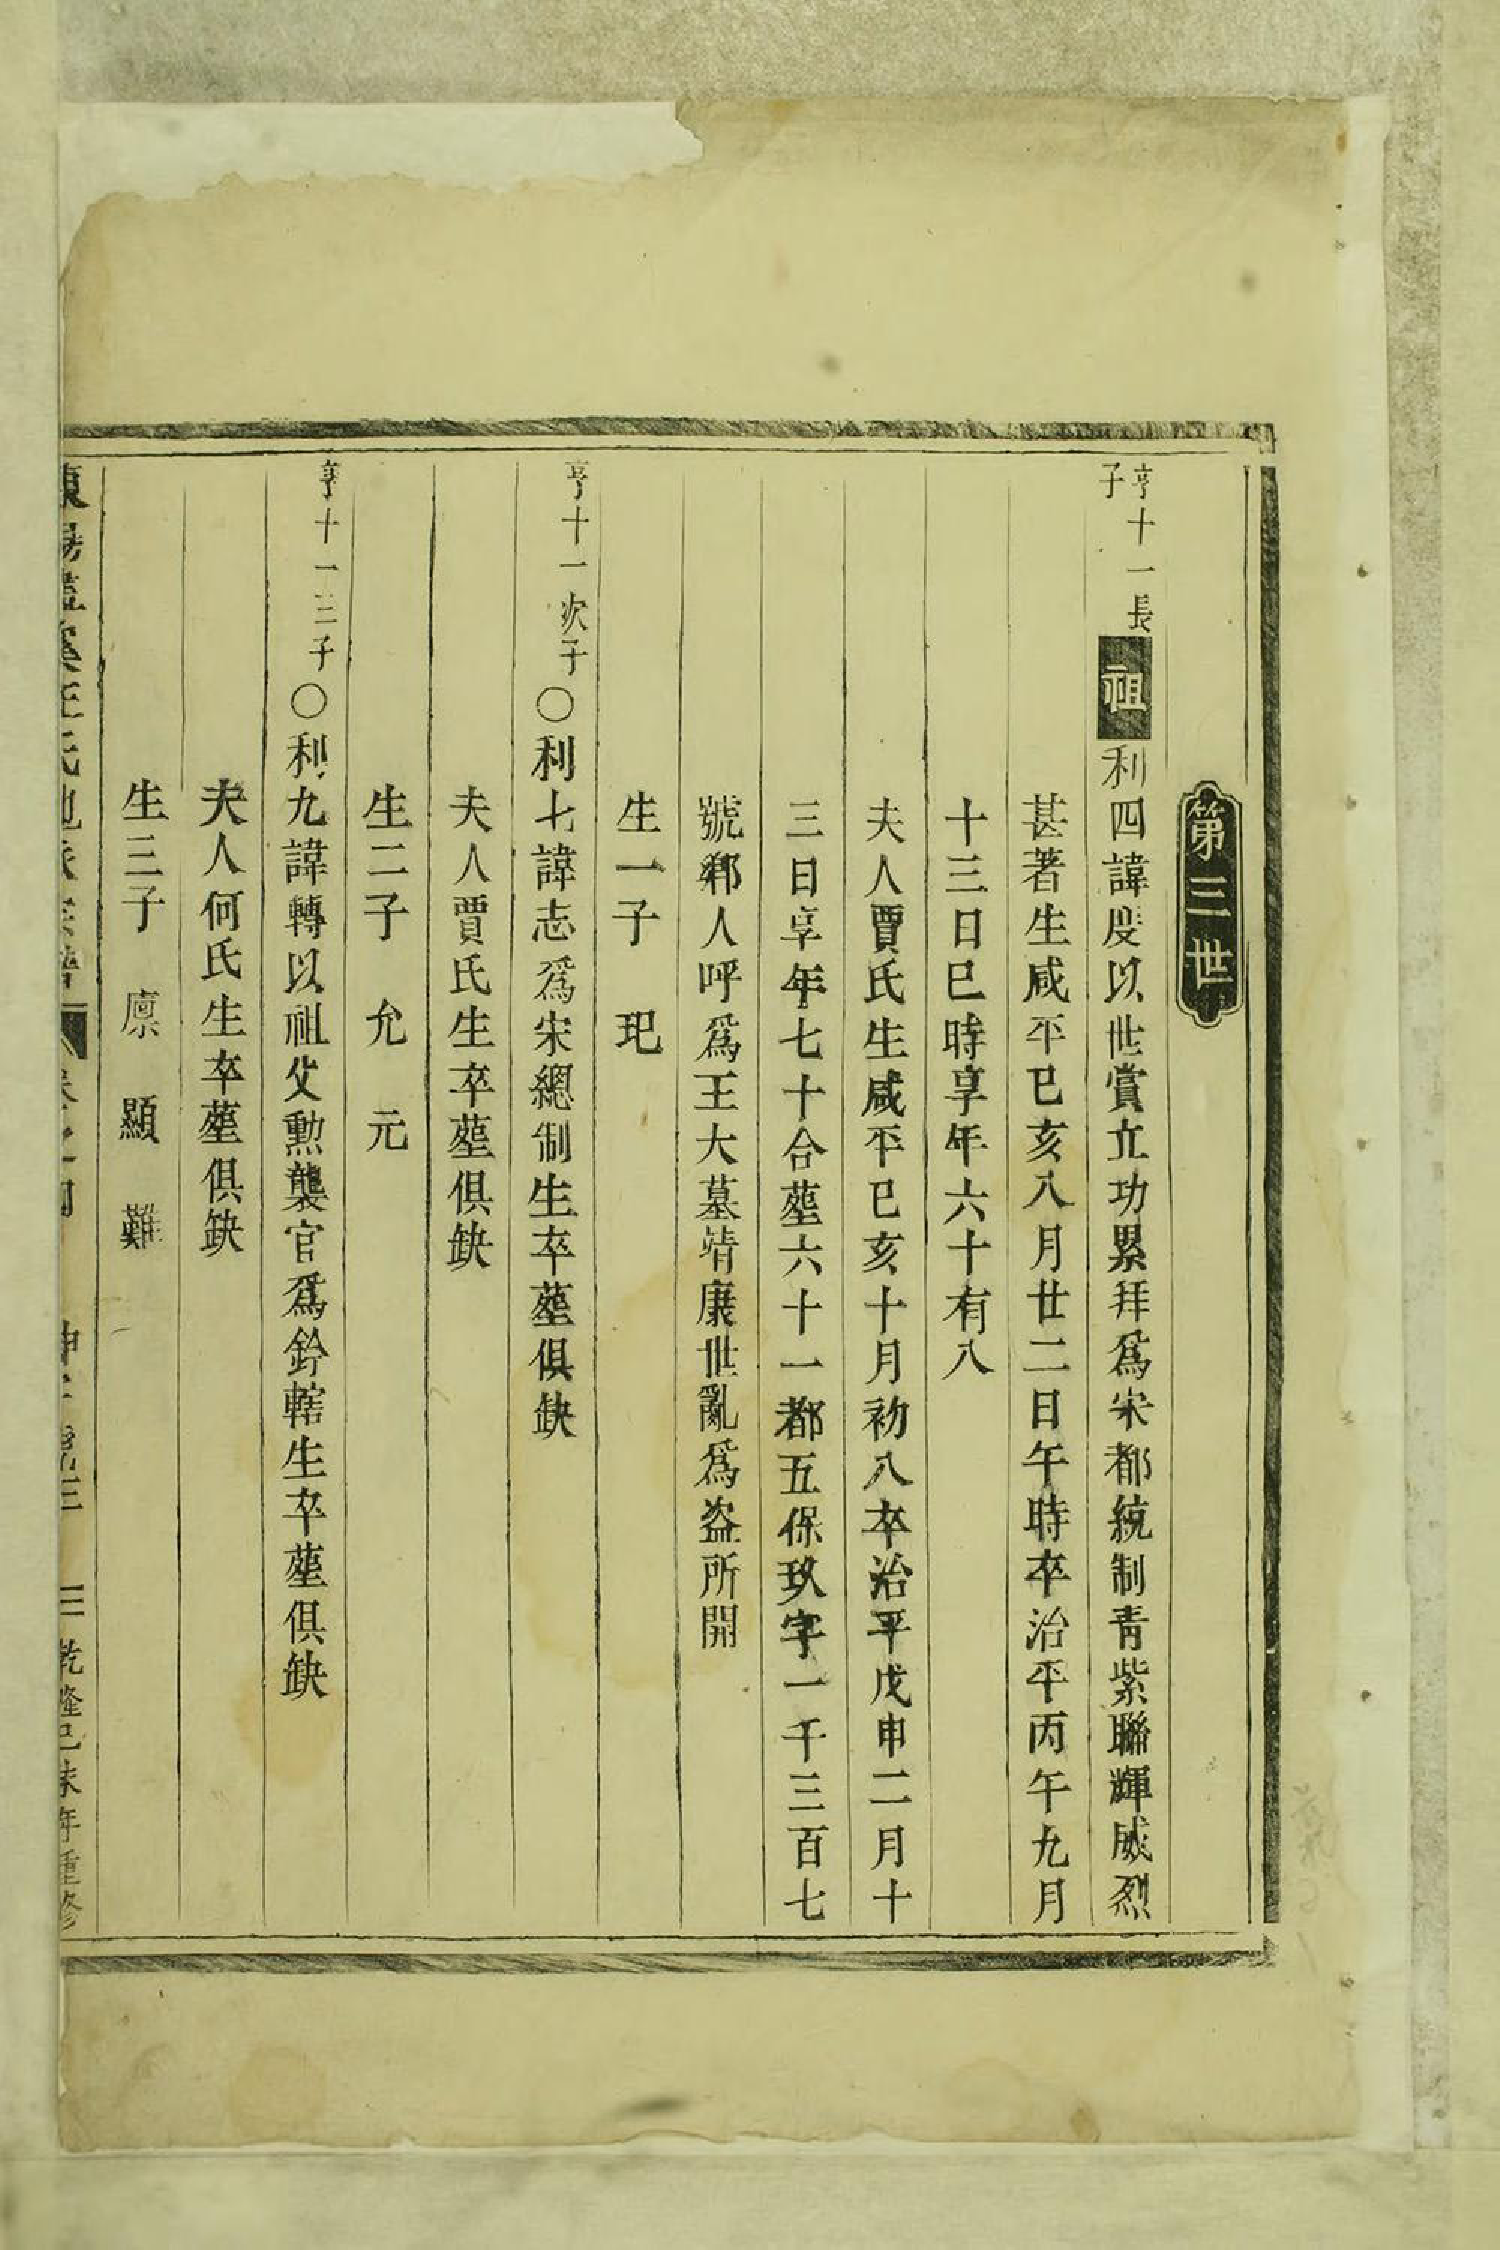 第三世
亨十一長子
祖利四諱度以世賞立功累拜爲宋都統制靑紫聯輝威烈
甚著生咸平已亥八月廿二日午時卒治平丙午九月
十三日巳時享年六十有八
夫人賈氏生咸平已亥十月初八卒治平戊申二月十
三日享年七十合塟六十一都五保玖字一千三百七
號鄰人呼爲王大墓靖康世亂爲盗所開
生一子 玘
亨十一次子
○利七諱志爲宋總制生卒塟俱缺
夫人賈氏生卒塟俱缺
生二子 允 元
亨十一三子
○利九諱轉以祖父勲襲官爲鈐轄生卒塟俱缺
夫人何氏生卒塟俱缺
生三子 廪 顯 難
王氏 宗譜 卷之四 三 乾隆已未年重修